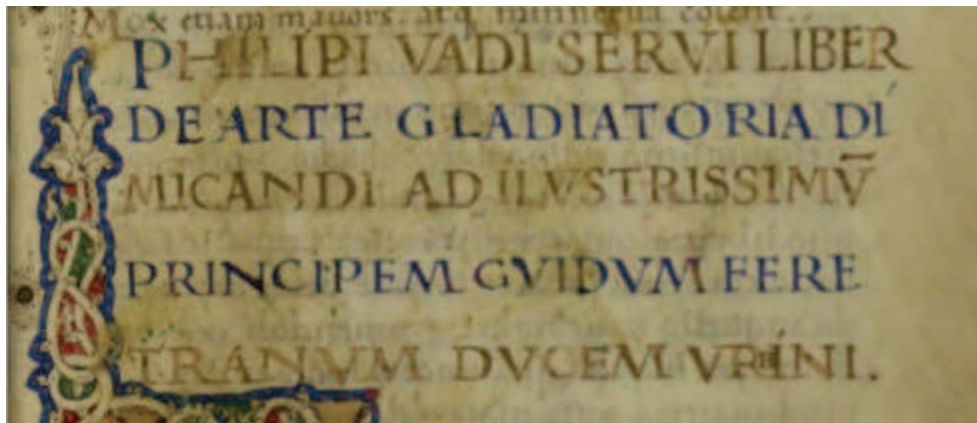 Mox etiam mavors. atq
PHILIPI VADI SERVI LIBER
DE ARTE GLADIATORIA DI
MICANDI AD ILVSTRISSIMV̄
PRINCIPEM GVIDVM FERE
TRANVM DVCEM VRBINI.